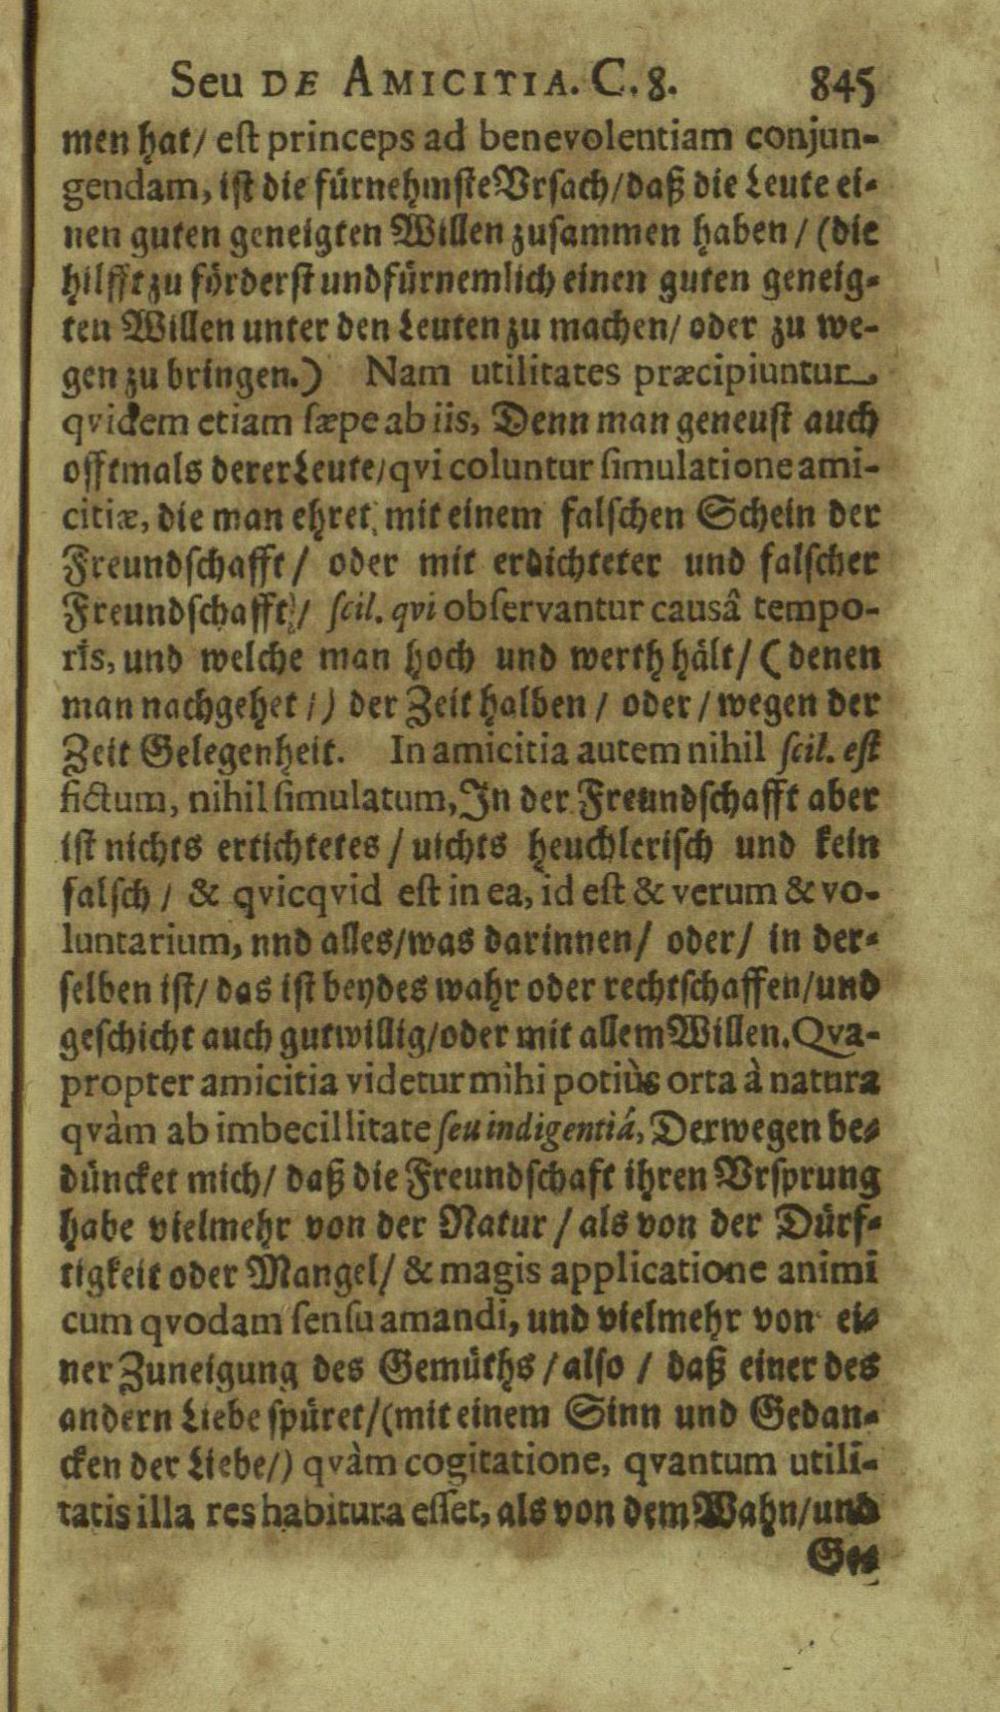 Seu DE AMICITIA. C. 8. 845
men hat/ est princeps ad benevolentiam conjun-
gendam, ist die fürnehmste Vrsach/ daß die Leute ei-
nen guten geneigten Willen zusammen haben/ (die
hilfft zu förderst und fürnemlich einen guten geneig-
ten Willen unter den Leuten zu machen/ oder zu we-
gen zu bringen.) Nam utilitates præcipiuntur
qvidem etiam sæpe ab iis, Denn man geneust auch
offtmals derer Leute/ qvi coluntur simulatione ami-
citiæ, die man ehret mit einem falschen Schein der
Freundschafft/ oder mit erdichteter und falscher
Freundschafft/ scil. qvi observantur causâ tempo-
ris, und welche man hoch und werth hält/ (denen
man nachgehet/) der Zeit halben/ oder/ wegen der
Zeit Gelegenheit. In amicitia autem nihil scil. est
fictum, nihil simulatum, In der Freundschafft aber
ist nichts ertichtetes/ uichts heuchlerisch und kein
falsch/ & qvicqvid est in ea, id est & verum & vo-
luntarium, nnd alles/ was darinnen/ oder/ in der-
selben ist/ das ist beydes wahr oder rechtschaffen/ und
geschicht auch gutwillig/ oder mit allem Willen. Qva-
propter amicitia videtur mihi potiùs orta à natura
qvàm ab imbecillitate seu indigentiâ, Derwegen be-
düncket mich/ daß die Freundschaft ihren Vrsprung
habe vielmehr von der Natur/ als von der Dürf-
tigkeit oder Mangel/ & magis applicatione animi
cum qvodam sensu amandi, und vielmehr von ei-
ner Zuneigung des Gemüths/ also/ daß einer des
andern Liebe spüret/ (mit einem Sinn und Gedan-
cken der Liebe/) qvàm cogitatione, qvantum utili-
tatis illa res habitura esset, als von dem Wahn/ und
Ge-